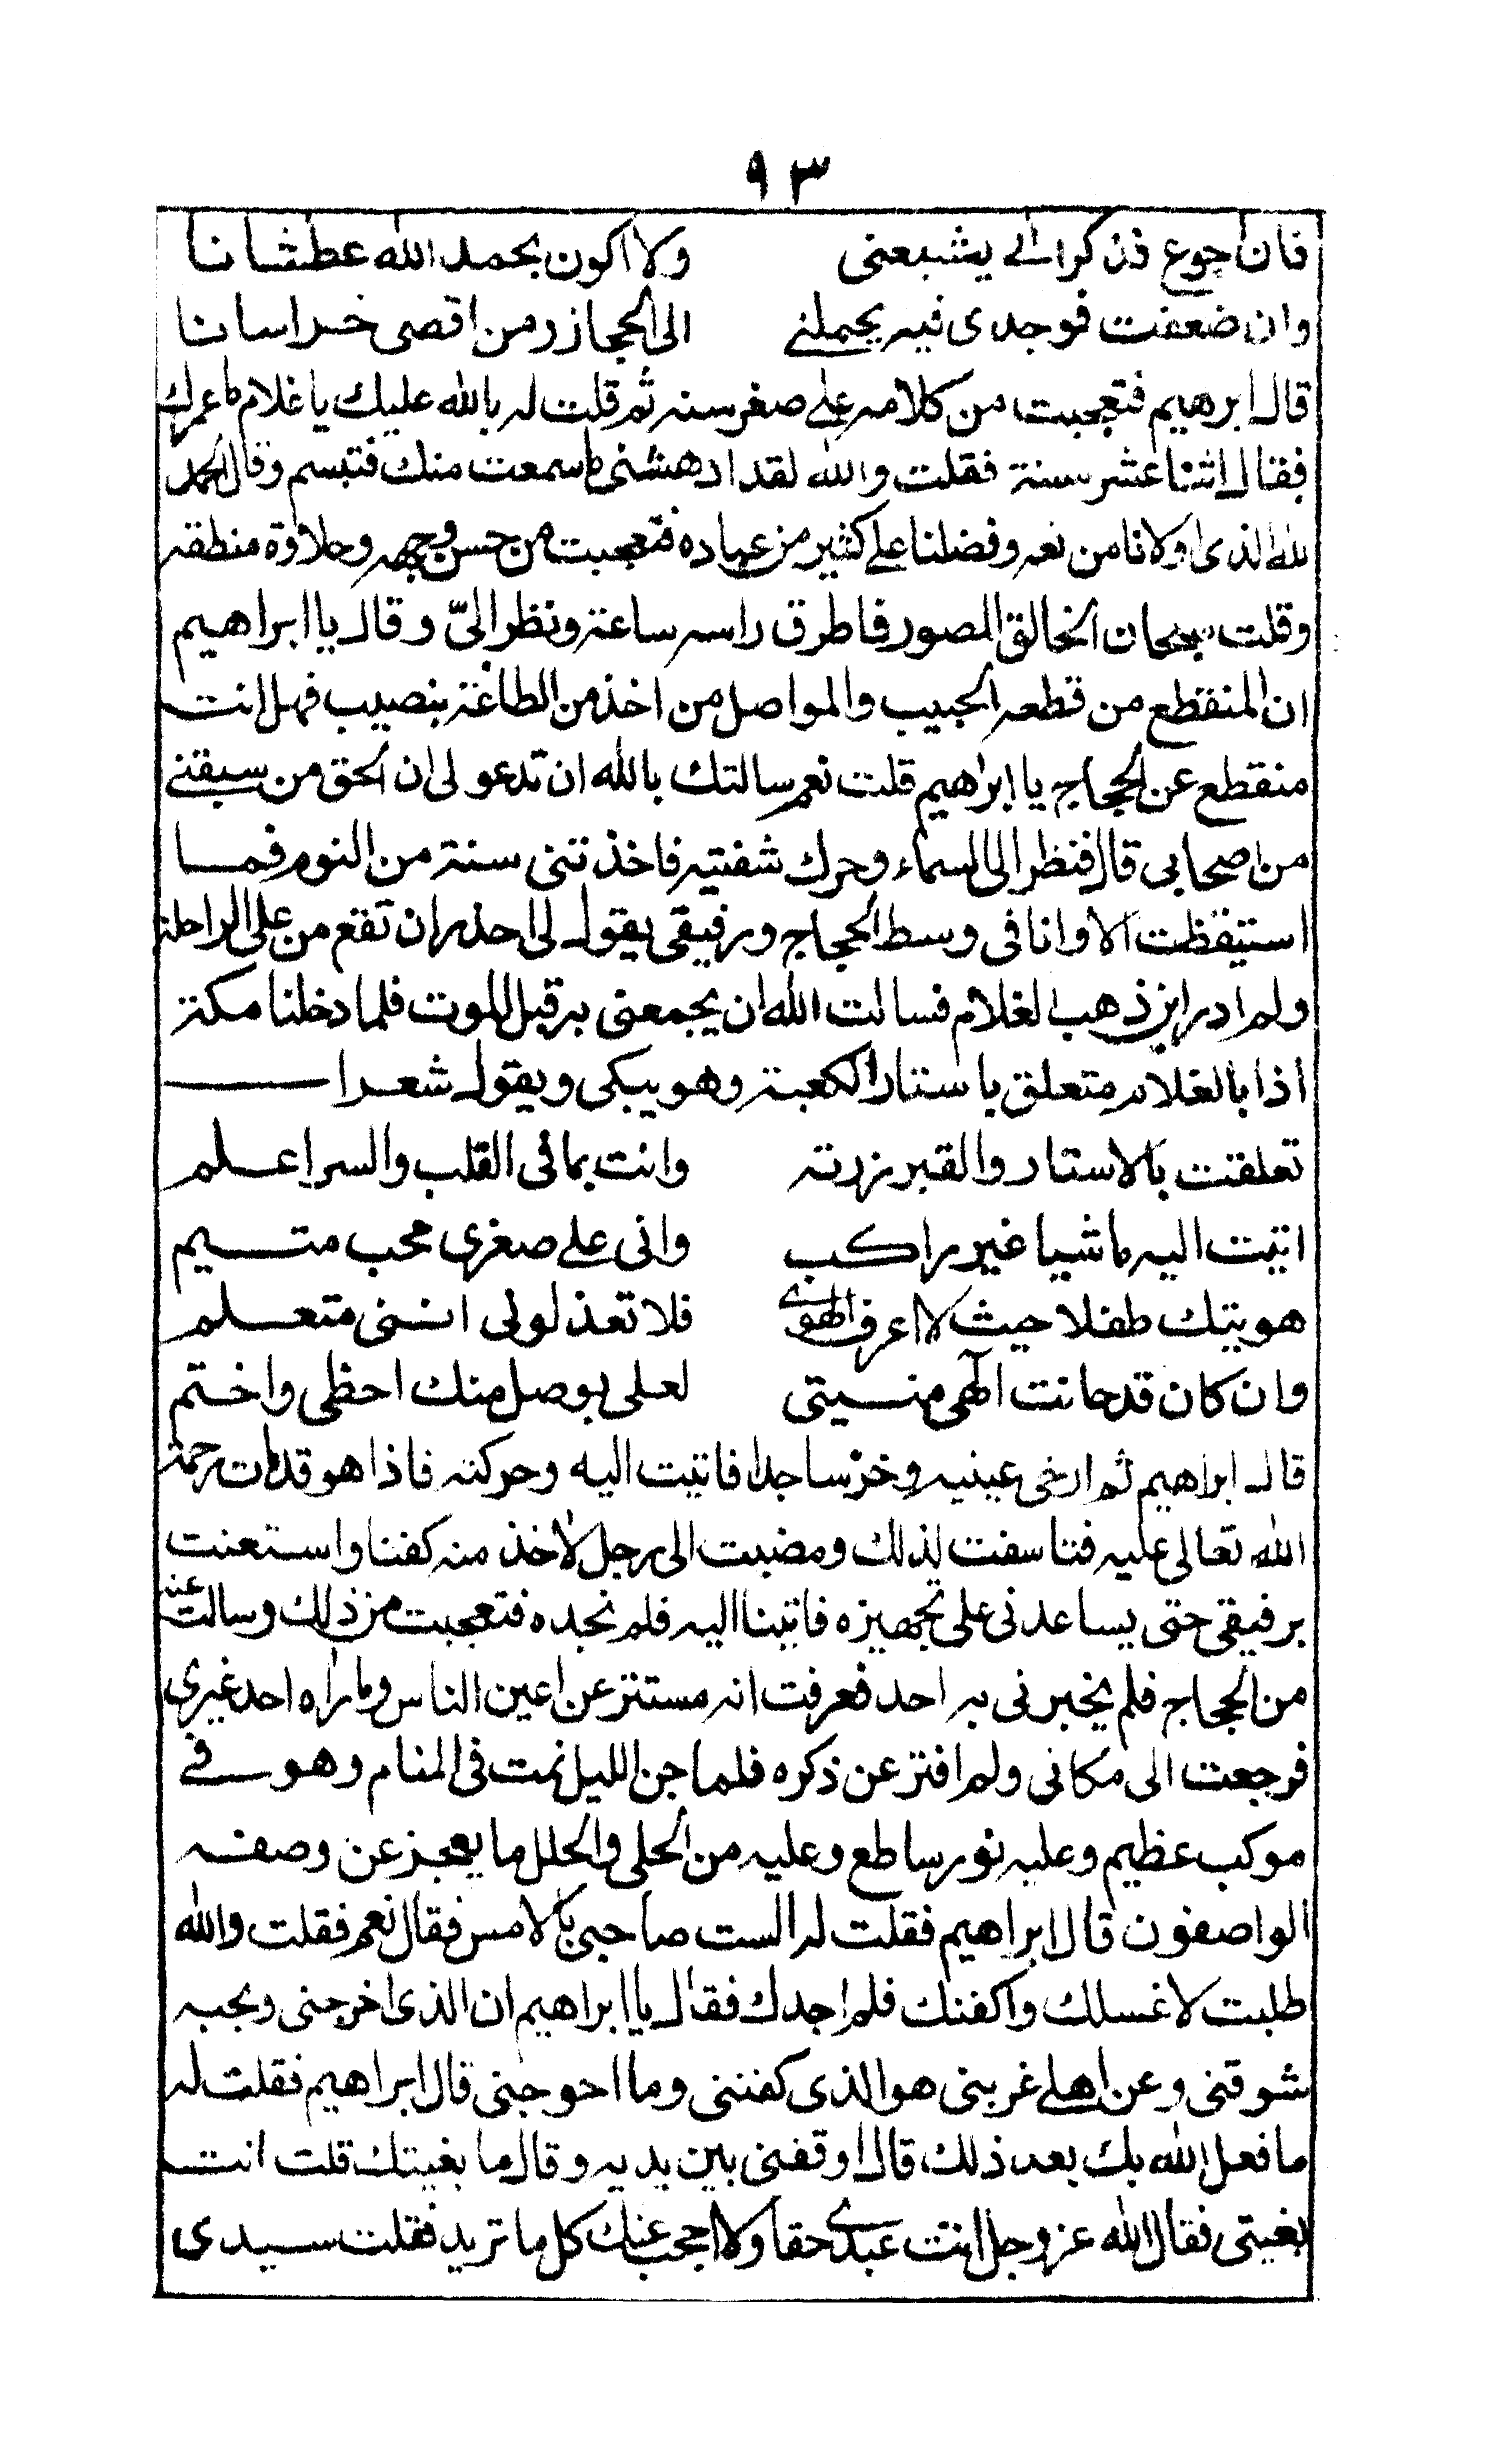 ٩٣
فان اجوع فذكر الله يشبعنى ولا اكون بحمد الله عطشانا
وان ضعفت فوجدى فيه يحملنے الى الحجاز من اقصى خراسانا
قال ابرهيم فتعجبت من كلامه على صغر سنه ثم قلت له بالله عليك يا غلام ما عمرك
فقال اثنا عشر سنة فقلت والله لقد ادهشنى ما سمعت منك فتبسم وقال الحمد
لله الذى اولانا من نعمه وفضلنا على كثير من عباده فتعجبت من حسن وجهه وحلاوة منطقه
وقلت سبحان الخالق المصور فاطرق راسه ساعة ونظر الىّ وقال يا ابراهيم
ان المنقطع من قطعه الحبيب والمواصل من اخذ من الطاعة بنصيب فهل انت
منقطع عن الحجاج يا ابراهيم قلت نعم سالتك بالله ان تدعو لى ان الحق من سبقنے
من اصحابى قال فنظر الى السماء وحرك شفتيه فاخذتنى سنة من النوم فما
استيقظت الا وانا فى وسط الحجاج ورفيقى يقول لى احذر ان تقع من على الراحلة
ولم ادر اين ذهب الغلام فسالت الله ان يجمعنى به قبل الموت فلما دخلنا مكة
اذا بالغلام متعلق باستار الكعبة وهو يبكى ويقول شعرا
تعلقت بالاستار والقبر زرته وانت بما فى القلب والسر اعلم
اتيت اليه ماشيا غير راكب وانى على صغرى محب متيم
هويتك طفلا حيث لا اعرف الهوى فلا تعذلونى اننى متعلم
وان كان قد حانت الٓهى منيتى لعلى بوصل منك احظى واختم
قال ابراهيم ثم ارخى عينيه وخر ساجدا فاتيت اليه وحركته فاذا هو قد مات رحمة
الله تعالى عليه فتاسفت لذلك ومضيت الى رجل لاخذ منه كفنا واستعنت
برفيقى حتى يساعدنى على تجهيزه فاتينا اليه فلم نجده فتعجبت من ذلك وسالت عنه
من الحجاج فلم يخبرنى به احد فعرفت انه مستتر عن اعين الناس وما راه احد غيرى
فرجعت الى مكانى ولم افتر عن ذكره فلما جن الليل نمت فى المنام وهو فے
موكب عظيم وعليه نور ساطع وعليه من الحلى والحلل ما يعجز عن وصفه
الواصفون قال ابراهيم فقلت له الست صاحبى بالامس فقال نعم فقلت والله
طلبت لاغسلك واكفنك فلم اجدك فقال يا ابراهيم ان الذى اخرجنى وبحبه
شوقنى وعن اهلى غربنى هو الذى كفننى وما احوجنى قال ابراهيم فقلت له
ما فعل الله بك بعد ذلك قال اوقفنى بين يديه وقال ما بغيتك قلت انت
بغيتى فقال الله عز وجل انت عبدى حقا ولا احجب عنك كل ما تريد فقلت سيدى